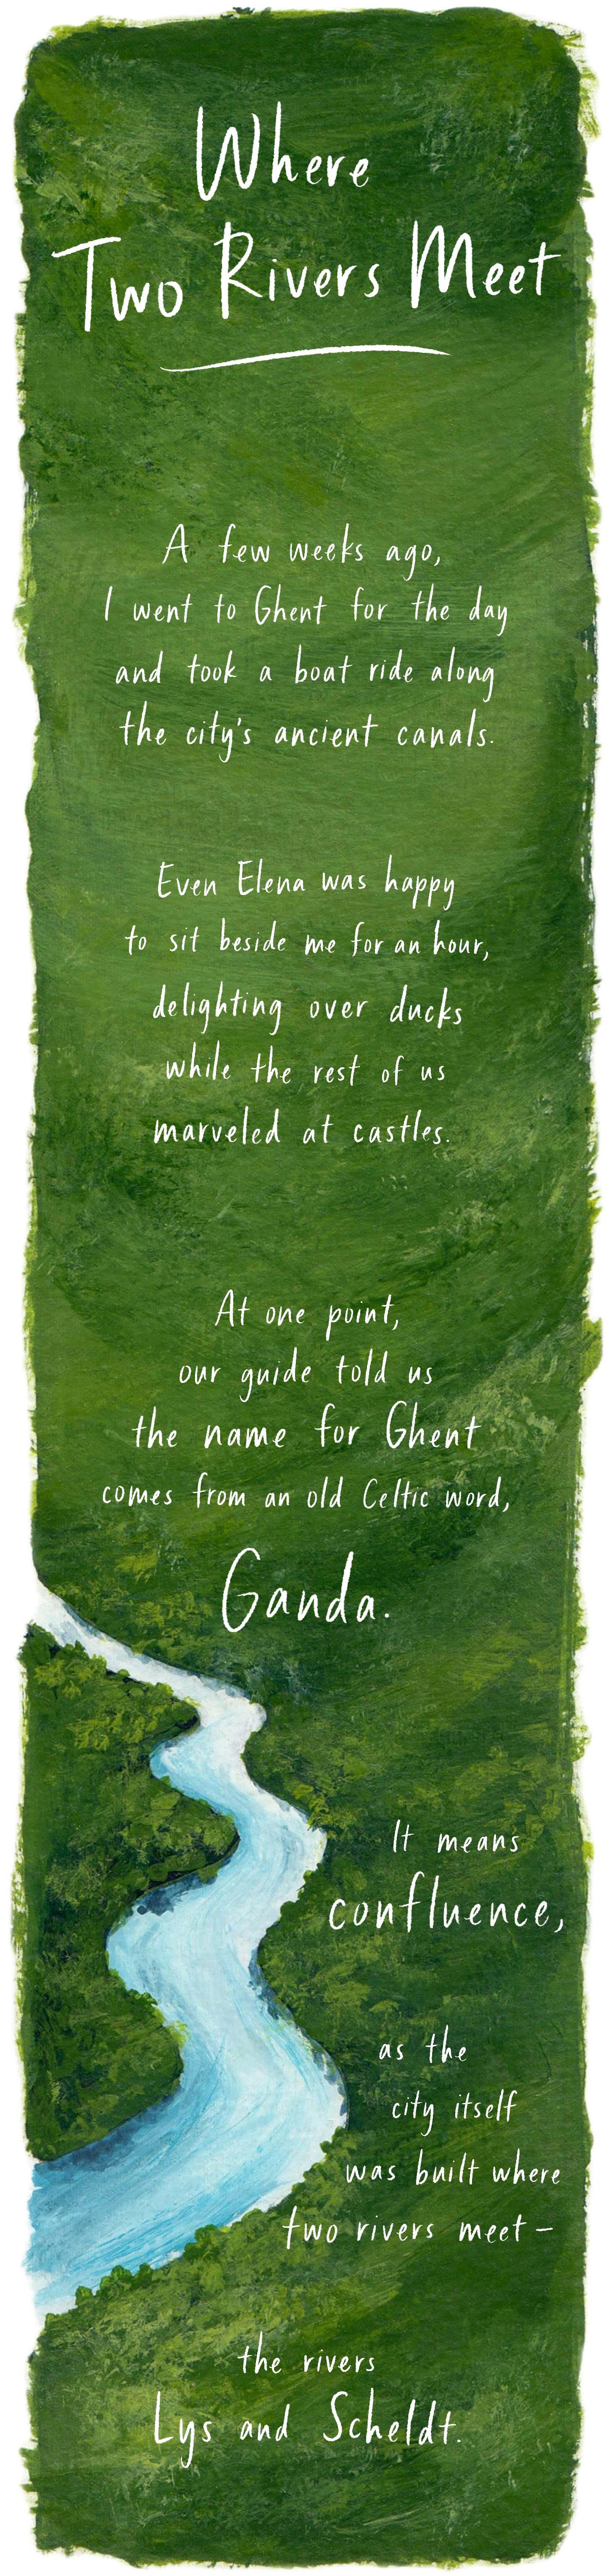 Where
Two Rivers Meet
A few weeks ago,
I went to Ghent for the day
and took a boat ride along
the city's ancient canals.
Even Elena was happy
to sit beside me for an hour,
delighting over ducks
while the rest of us
marveled at castles.
At one point,
our guide told us
the name for Ghent
comes from an old Celtic word,
Ganda.
It means
confluence,
as the
city itself
was built where
two rivers meet –
the rivers
Lys and Scheldt.